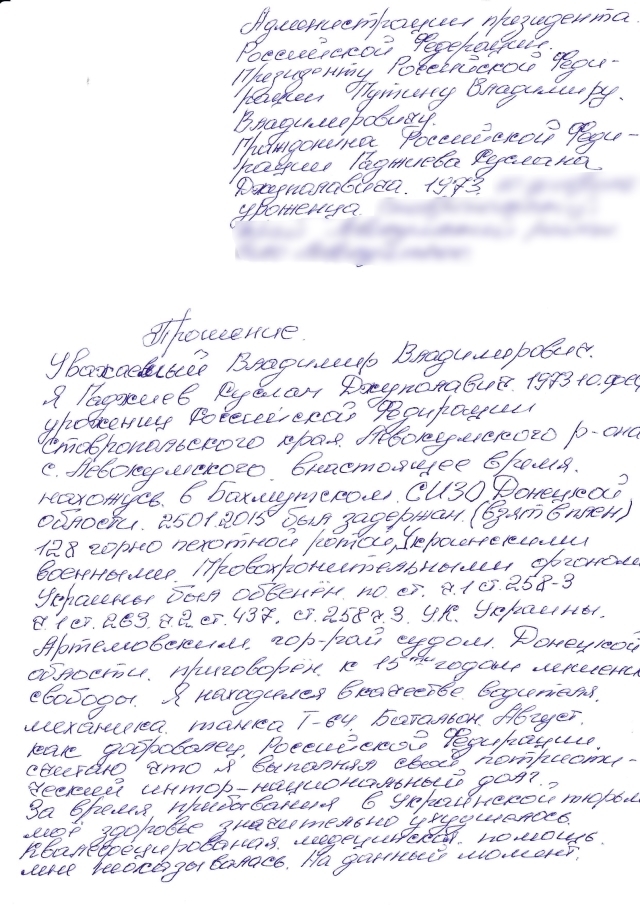 Администрации президента
Российской Федерации.
Президенту Российской Феди-
рации Путину Владимиру.
Владимировичу.
Гражданина Российской Феди-
рации Гаджиева Руслана
Джупалавича. 1973
уроженца
Прошение.
Уважаемый Владимир Владимирович.
Я Гаджиев Руслан Джуполавич. 1973 го.фев
уроженец Российской Федирации
Ставропольского края Левокумского р-она
с. Левокумского. внастоящее время.
нахожусь. в Бахмутском. СИЗО Донецкой
области. 25.01.2015 был задержан. (взят вплен)
128 горно пехотной ротой, Украинскими
военными. Провохронительными органом
Украины был обвенён. по. ст. ч.1 ст.258-3
ч.1 ст. 263 ч2 ст. 437. ст.258 ч.3. УК. Украины.
Артемовским. гор-рай судом. Донецкой
области. приговорён. к 15ти годам лишени
свободы. Я находился вкачестве водителя.
механика. танка Т-64. Батальон. Август.
как доброволец. Российской Федирации.
считаю что я выполнял свой потриоти-
ческий интор-национальный долг.
За время прибывания в Украинской тюрьм
моё здоровье значительно ухудшелось.
Квалефецированая. медецинская. помощь.
мне неоказывалась. На данный момент.